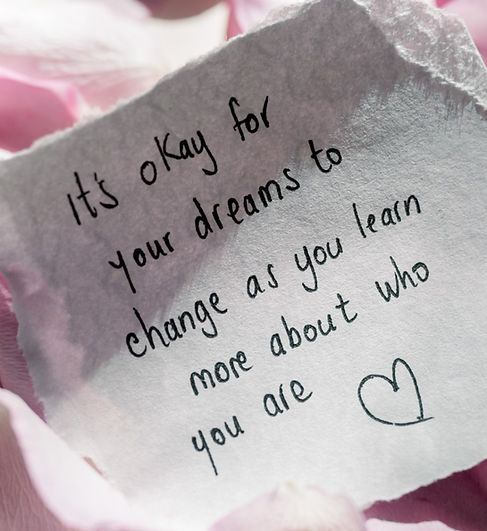 It's okay for
your dreams to
change as you learn
more about who
you are ♡